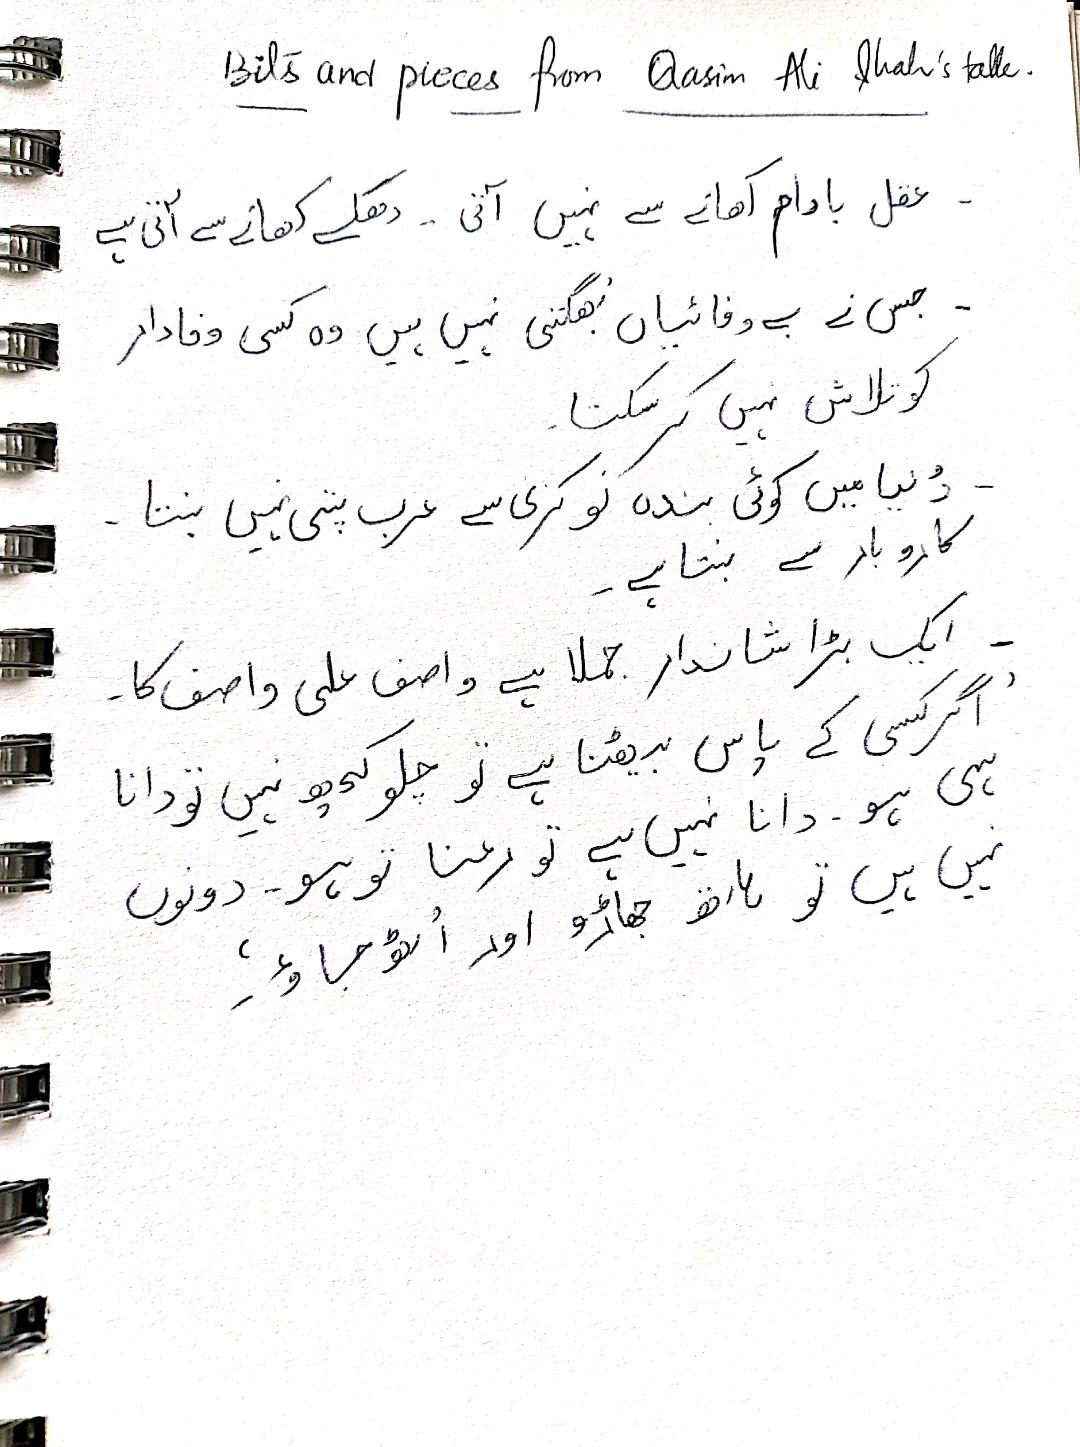 Bits and pieces from Qasim Ali Shah's talk.
- عقل بادام کھانے سے نہیں آتی ۔ دھکے کھانے سے آتی ہے
- جس نے بے وفائیاں بُھگتنی نہیں ہیں وہ کسی وفادار
کو تلاش نہیں کر سکتا۔
- دُنیا میں کوئی بندہ نوکری سے عرب پتی نہیں بنتا ۔
کاروبار سے بنتا ہے ۔
- ایک بڑا شاندار جملا ہے واصف علی واصف کا۔
'اگر کسی کے پاس بیٹھنا ہے تو چلو کچھ نہیں تو دانا
ہی ہو۔ دانا نہیں ہے تو رعنا تو ہو۔ دونوں
نہیں ہیں تو ہاتھ جھاڑو اور اُٹھ جاؤ۔'